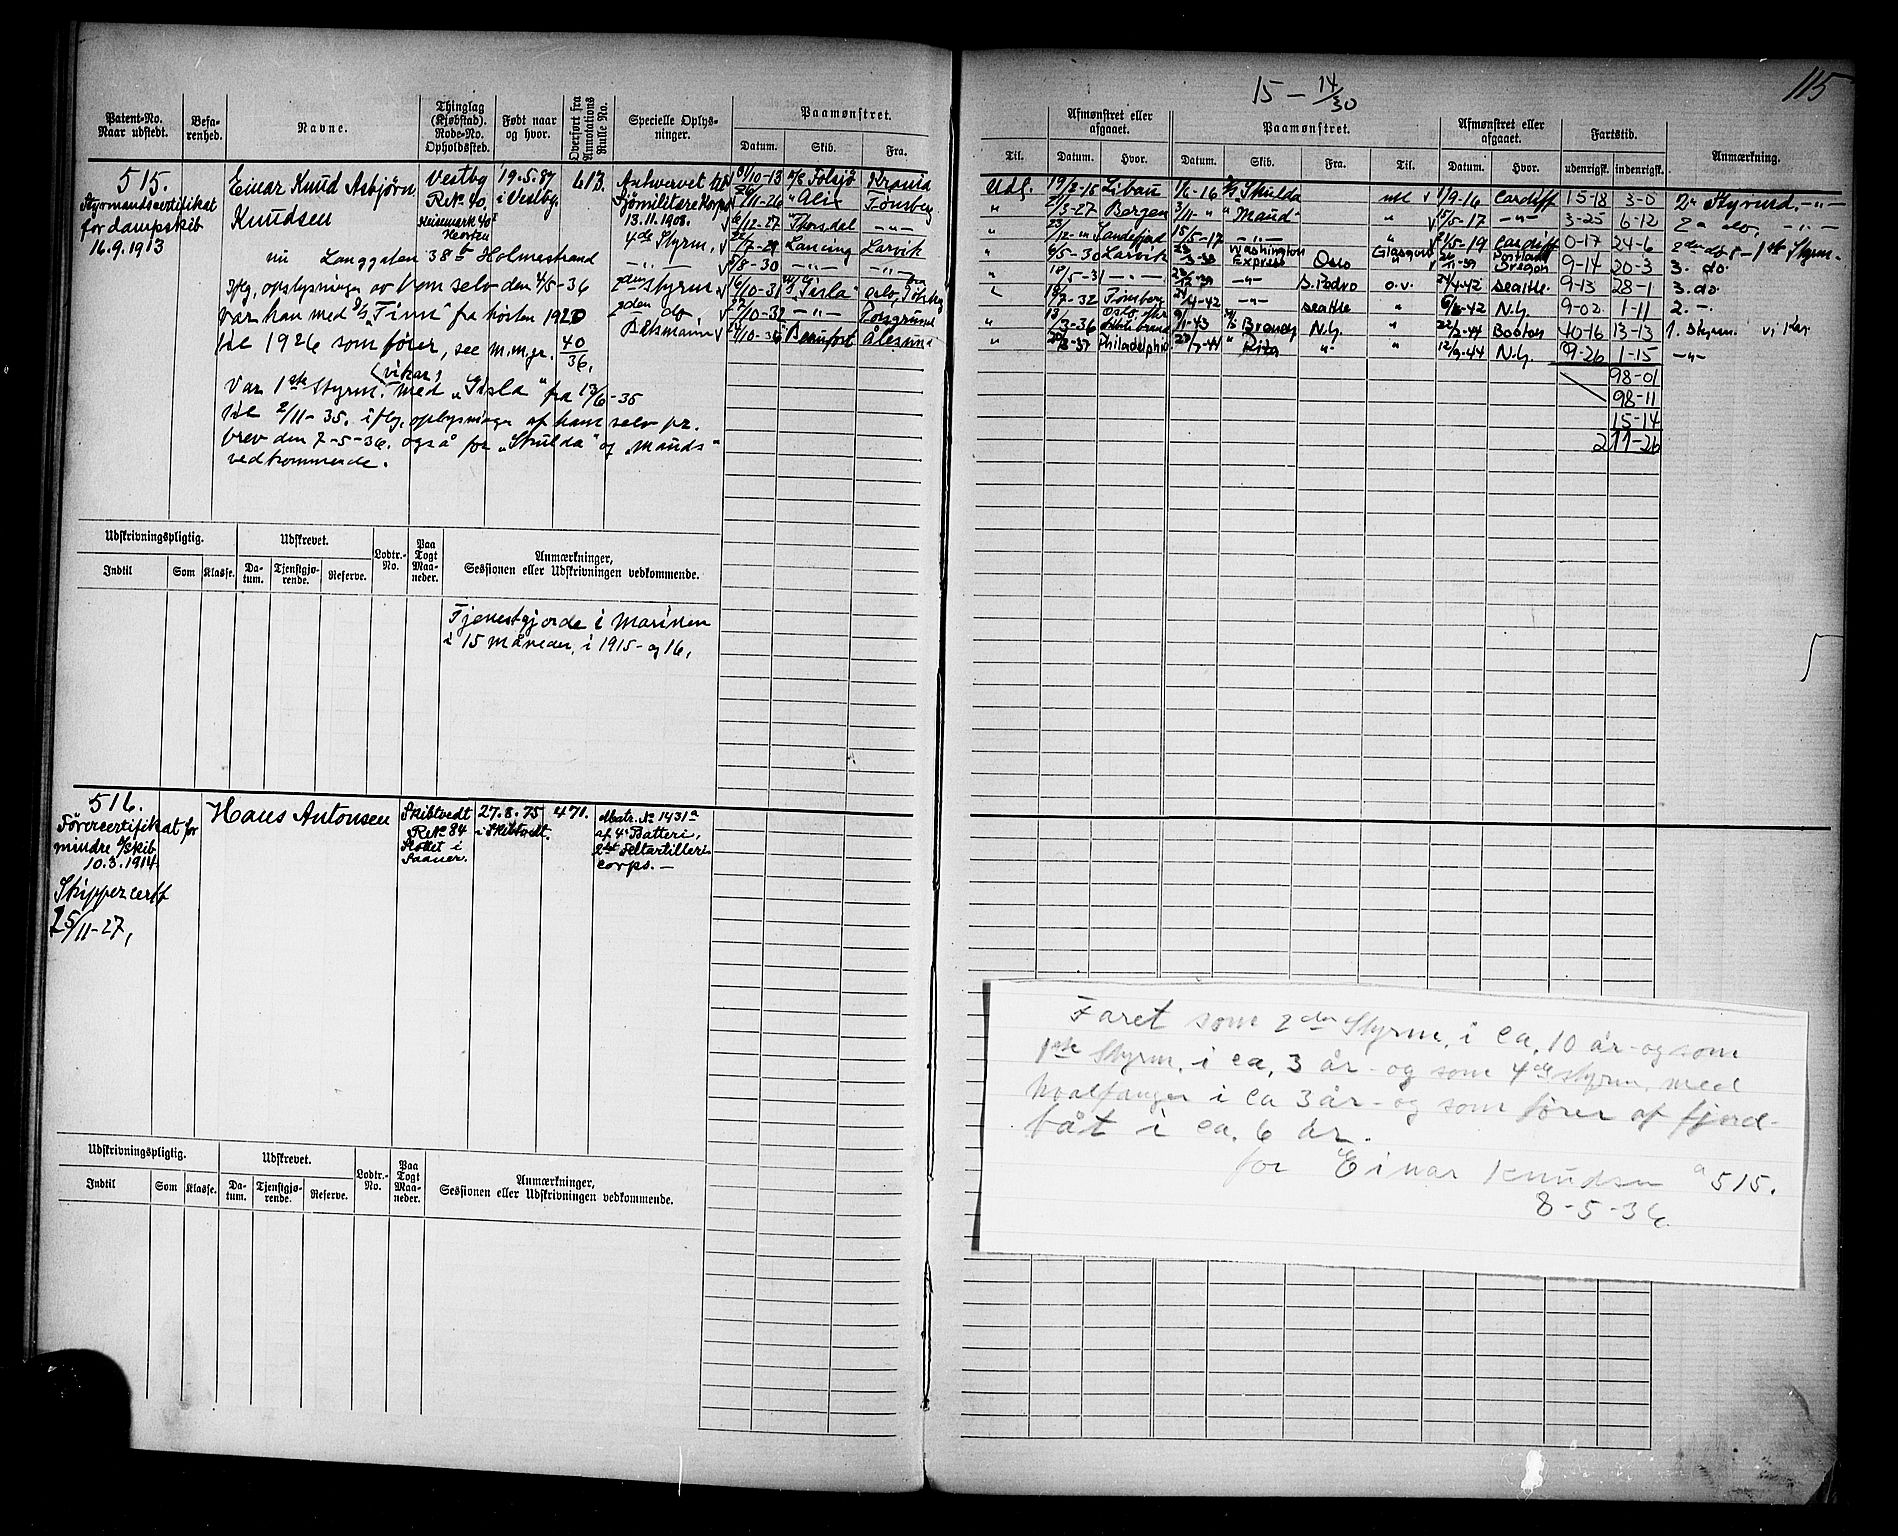 115
15 – 14/30
Patent-No. Naar udstedt.
Befa-renhed.
Navne.
Thinglag (Kjøbstad). Rode-No. Opholdssted.
Født naar og hvor.
Overført fra Annotations Rulle No.
Specielle Oplys-ninger.
Paamønstret.
Datum. Skib. Fra.
Til.
Afmønstret eller afgaaet.
Datum. Hvor.
Paamønstret.
Datum. Skib. Fra. Til.
Afmønstret eller afgaaet.
Datum. Hvor.
Fartstid.
udenrigsk. indenrigsk.
Anmærkning.
515.
Styrmandscertifikat
for dampskib
16.9.1913
Einar Knud Asbjørn
Knudsen
Vestby
R.No 40.
19.5.87
i Vestby.
613.
Sjømilitære Korps
13.11.1908.
4de Styrm.
Styrm.
2den do
Båtsmann
nu Langgaten 38b Holmestrand
Ifølg. opplysninger av ham selv den 4/5-36
var han med D/S „Tim“ fra høsten 1920
til 1926 som fører, see m.m. jr. 40/36.
(vikar)
Var 1ste Styrm. med „Gisla“ fra 13/6-35
til 2/11-35. iflg. oplysninger af ham selv pr.
brev den 7-5-36. også for „Skulda“ og „Mauds“
vedkommende.
10-13 Folsjø Krania
11-26 „ Alix Tønsberg
12-27 „ Thorsdal –„–
7-29 Lancing Larvik
/8-30 –„– –„–
10-31 „Gisla“ Oslo
10-32 –„– Porsgrund
10-36 Beaufort Ålesund
Udl. 19/2-15 Libau 1/6-16 Skulda utl 1/9-16 Cardiff 15-18 3-0 2. Styrmd. –„–
„ /3-27 Bergen 3/11-„ „ Maud „ 15/5-17 –„– 3-25 6-12 2. do. –„–
„ Sandefjord 15/5-17 –„– „ /5-19 Cardiff 0-17 24-6
„ /5-30 Larvik Washington Express Oslo Glasgow Portland Oregon 9-14 20-3 3. do.
„ 18/5-31 –„– –„– S. Pedro o.v. /4-42 Seattle. 9-13 28-1 3. do
/7-32 Tønsberg /4-42 –„– Seattle „ /6-42 N.Y. 9-02 1-11 2. –
„ 13/3-36 Oslo /11-43 Brandy N.Y. „ 22/2-44 Boston 40-16 13-13 1. Styrm.
„ /2-37 Philadelphia /7-44 „ Rita „ „ 12/9-44 N.Y. 9-26 1-15 –„–
98-01
98-11
15-14
211-26
Udskrivningspligtig.
Indtil Som Klasse.
Udskrevet.
Da-tum. Tjenstgjø-rende. Reserve.
Lodtr.-No.
Paa Togt Maa-neder.
Anmærkninger,
Sessionen eller Udskrivningen vedkommende.
Tjenestgjorde i Marinen
i 15 måneder, i 1915- og 16,
516.
Førercertifikat for
mindre D/skib
10.3.1914
Skippercertf
25/11-27,
Hans Antonsen
Skibtvedt
R.No 84
Slottet i
Saaner.
27.8.75
i Skibtvedt.
471.
Matr. No 1431a
af 4. Batteri,
Feltartilleri
corps. –
Udskrivningspligtig.
Indtil Som Klasse.
Udskrevet.
Da-tum. Tjenstgjø-rende. Reserve.
Lodtr.-No.
Paa Togt Maa-neder.
Anmærkninger,
Sessionen eller Udskrivningen vedkommende.
Faret som 2den Styrm. i ca. 10 år - og som
1ste Styrm. i ca. 3 år - og som 4de styrm. med
hvalfanger i ca 3 år - og som fører af fjord-
båt i ca. 6 år.
for Einar Knudsen a 515.
8-5-36.